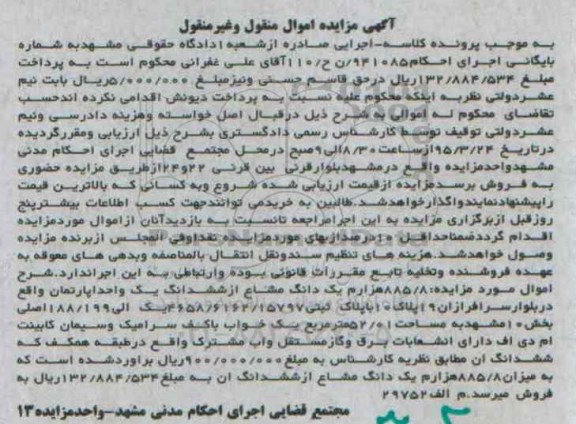 آگهی مزایده اموال منقول وغیرمنقول
به موجب پرونده کلاسه-اجرایی صادره ازشعبه۱دادگاه حقوقی مشهدبه شماره
بایگانی اجرای احکام۹۴۱۰۸۵/ن ح/۱۱۰آقای علی غفرانی محکوم است به پرداخت
مبلغ ۱۳۲/۸۸۴/۵۳۴ریال درحق قاسم حسنی ونیزمبلغ ۵/۰۰۰/۰۰۰ریال بابت نیم
عشردولتی نظربه اینکه محکوم علیه نسبت به پرداخت دیونش اقدامی نکرده اندحسب
تقاضای محکوم له اموالی به شرح ذیل درقبال اصل خواسته وهزینه دادرسی ونیم
عشردولتی توقیف توسط کارشناس رسمی دادگستری بشرح ذیل ارزیابی ومقررگردیده
درتاریخ ۹۵/۳/۲۴ازساعت۸/۳۰الی۹صبح درمحل مجتمع قضایی اجرای احکام مدنی
مشهدواحدمزایده واقع درمشهدبلوارقرنی بین قرنی ۲۲و۲۴ازطریق مزایده حضوری
به فروش برسدمزایده ازقیمت ارزیابی شده شروع وبه کسانی که بالاترین قیمت
راپیشنهادنمایندواگذارخواهدشد.طالبین به خریدمی توانندجهت کسب اطلاعات بیشترپنج
روزقبل ازبرگزاری مزایده به این اجرامراجعه تانسبت به بازدیدآنان ازاموال موردمزایده
اقدام گرددضمناحداقل ۱۰درصدازبهای موردمزایده نقداوفی المجلس ازبرنده مزایده
وصول خواهدشد.هزینه های تنظیم سندونقل انتقال بالمناصفه وبدهی های معوقه به
عهده فروشنده وتخلیه تابع مقررات قانونی بوده وارتباطی به این اجراندارد.شرح
اموال مورد مزایده:۸۸۵/۸هزارم یک دانگ مشاع ازششدانگ یک واحداپارتمان واقع
دربلوارسرافرازان۱۹پلاک۱۰باپلاک ثبتی ۱۵۷۹۷/ ۶۱۶۲/ ۴۶۵۸یک الی۱۸۸/۱۹۹اصلی
بخش۱۰مشهدبه مساحت ۵۲/۹۱مترمربع یک خواب باکف سرامیک وسیمان کابینت
ام دی اف دارای انشعابات برق وگازمستقل وآب مشترک واقع درطبقه همکف که
ششدانگ ان مطابق نظریه کارشناس به مبلغ۹۰۰/۰۰۰/۰۰۰ریال براوردشده است که
به میزان۸۸۵/۸هزارم یک دانگ مشاع ازششدانگ ان به مبلغ۱۳۲/۸۸۴/۵۳۴ریال به
فروش میرسد.م الف۲۹۷۵۲
مجتمع قضایی اجرای احکام مدنی مشهد-واحدمزایده۱۳